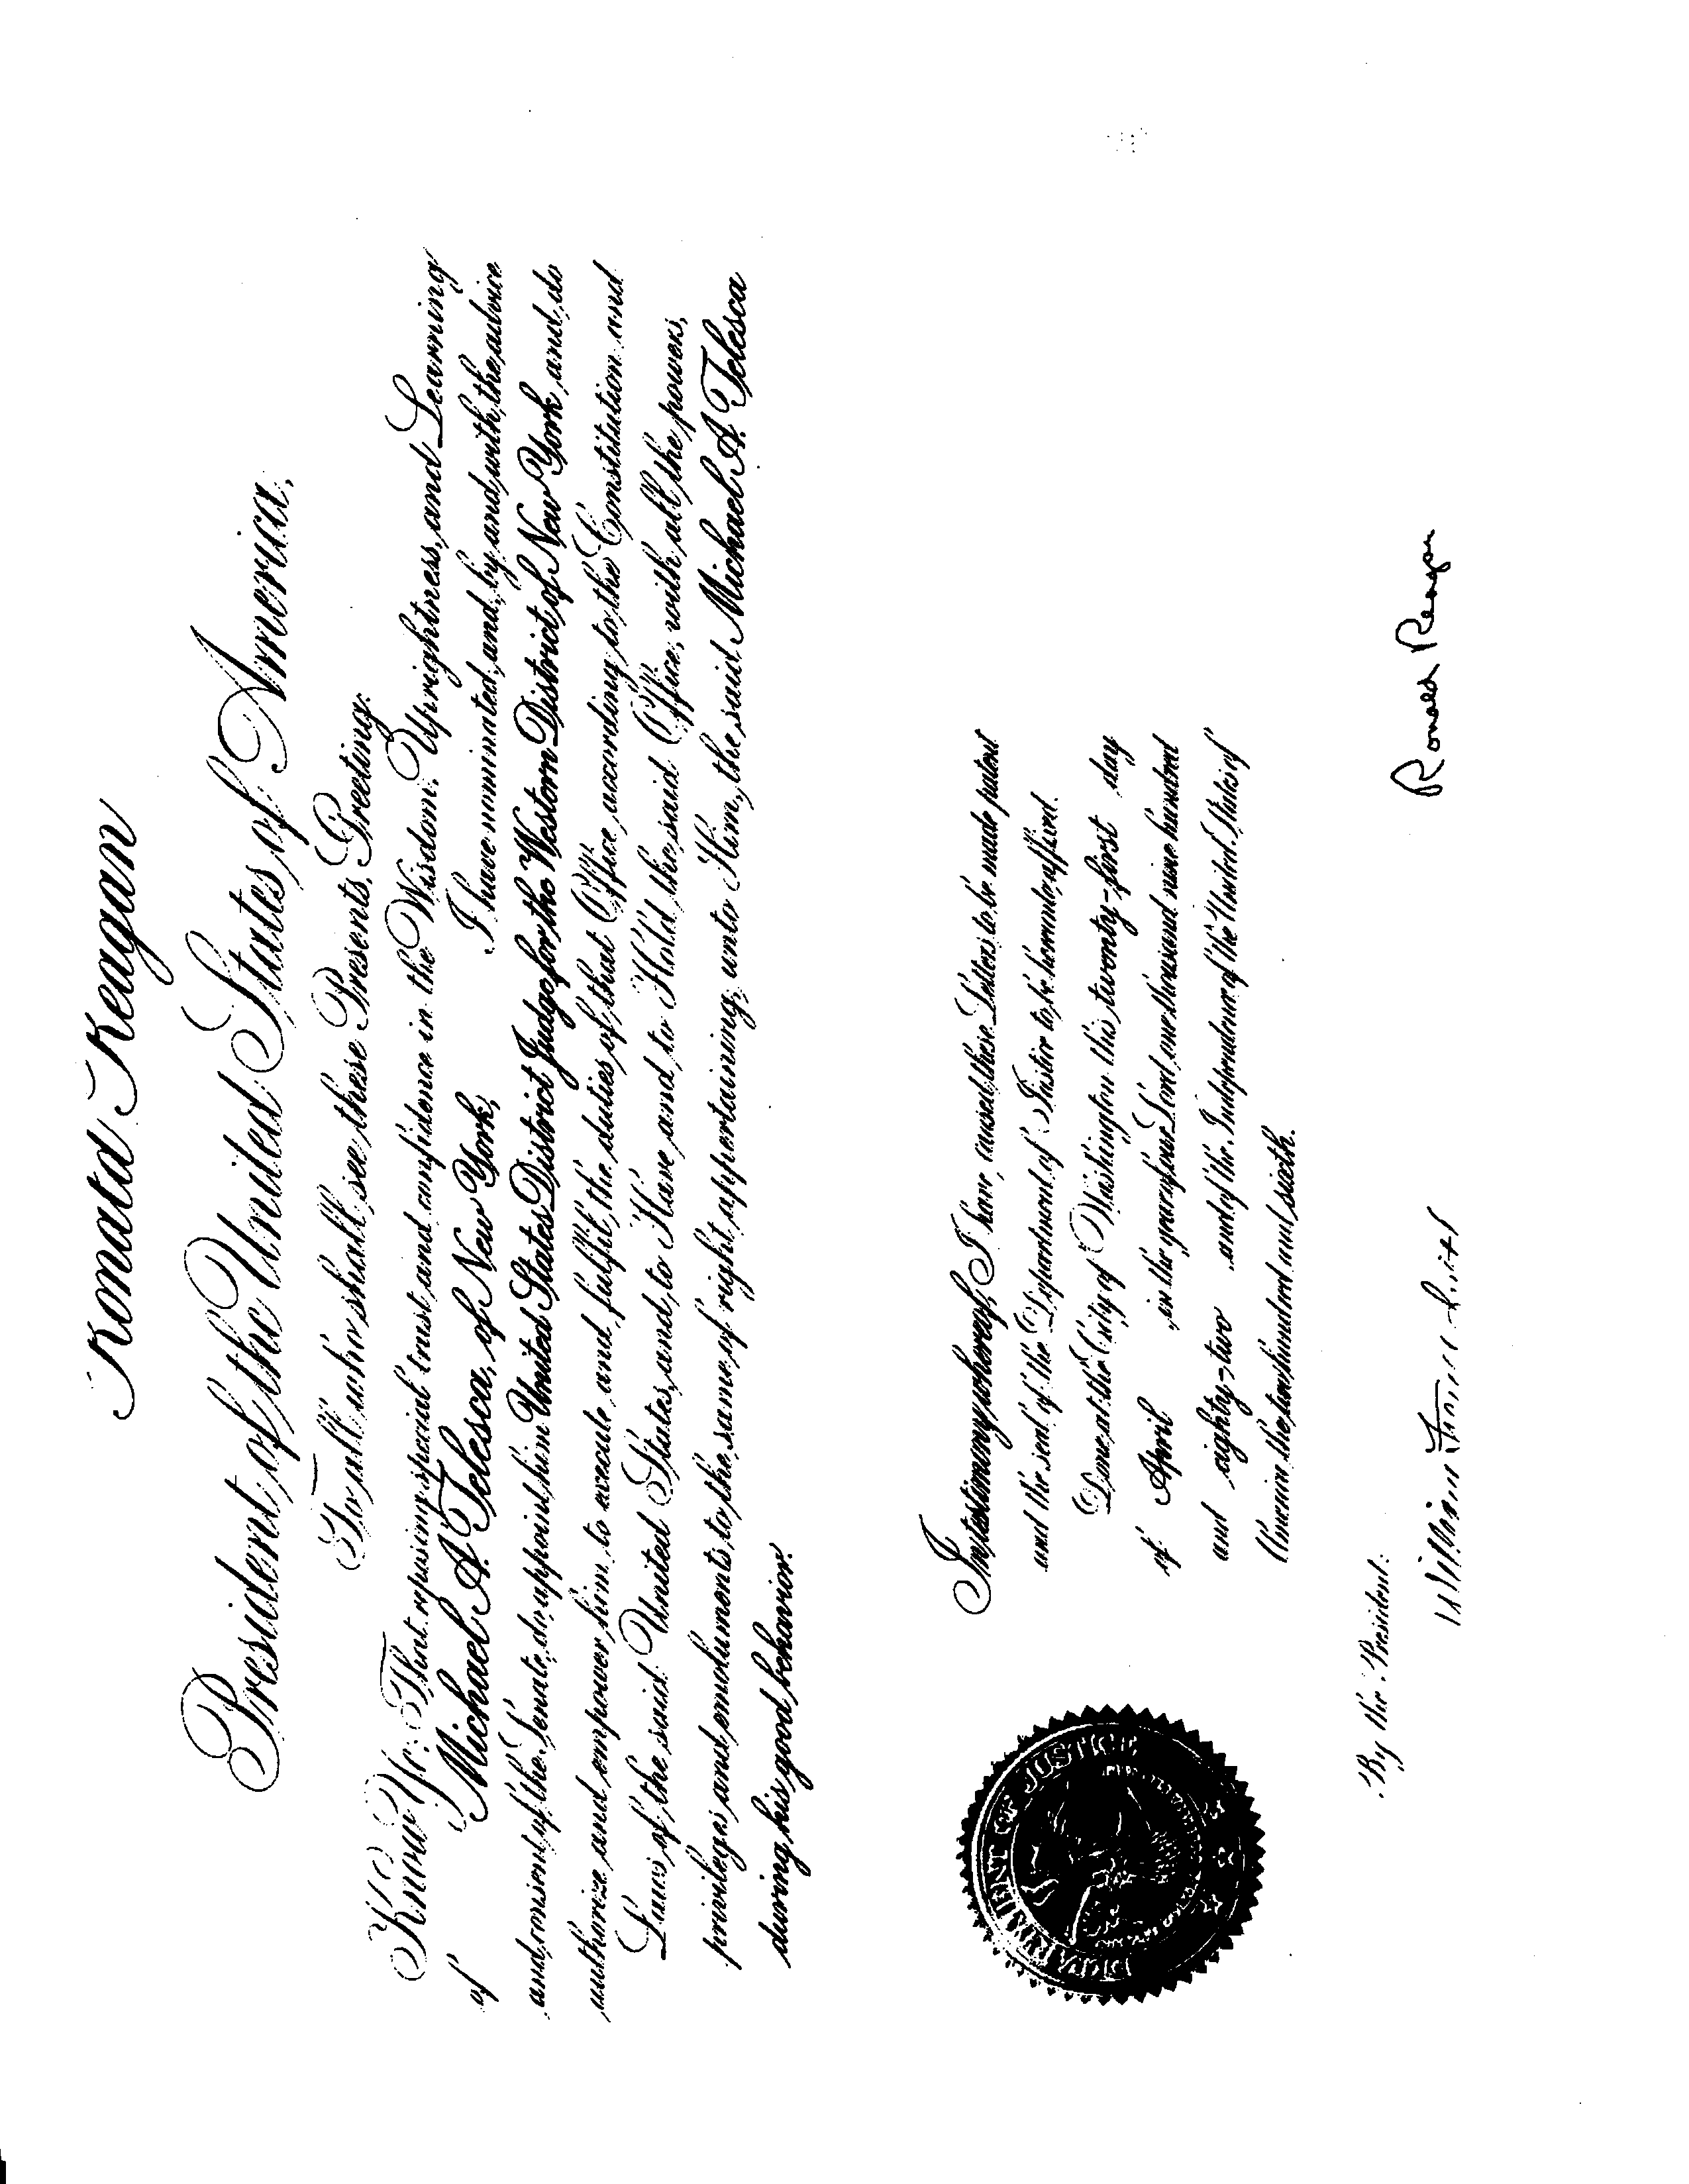 Ronald Reagan
President of the United States of America,
To all who shall see these Presents, Greeting:
Know Ye; That reposing special trust and confidence in the Wisdom, Uprightness, and Learning
of Michael A. Telesca, of New York, I have nominated, and, by and with, the advice
and consent of the Senate, do appoint him United States District Judge for the Western District of New York, and do
authorize and empower him to execute and fulfil the duties of that Office according to the Constitution and
Laws of the said United States, and to Have and to Hold the said Office, with all the powers,
privileges and emoluments to the same of right appertaining, unto Him, the said Michael A. Telesca
during his good behavior.
In testimony whereof, I have caused these Letters to be made patent
and the seal of the Department of Justice to be hereunto affixed.
Done at the City of Washington this twenty-first day
of April in the year of our Lord one thousand nine hundred
and eighty-two and of the Independence of the United States of
America the two hundred and sixth.
DEPARTMENT OF JUSTICE
Ronald Reagan
By the President:
William French Smith